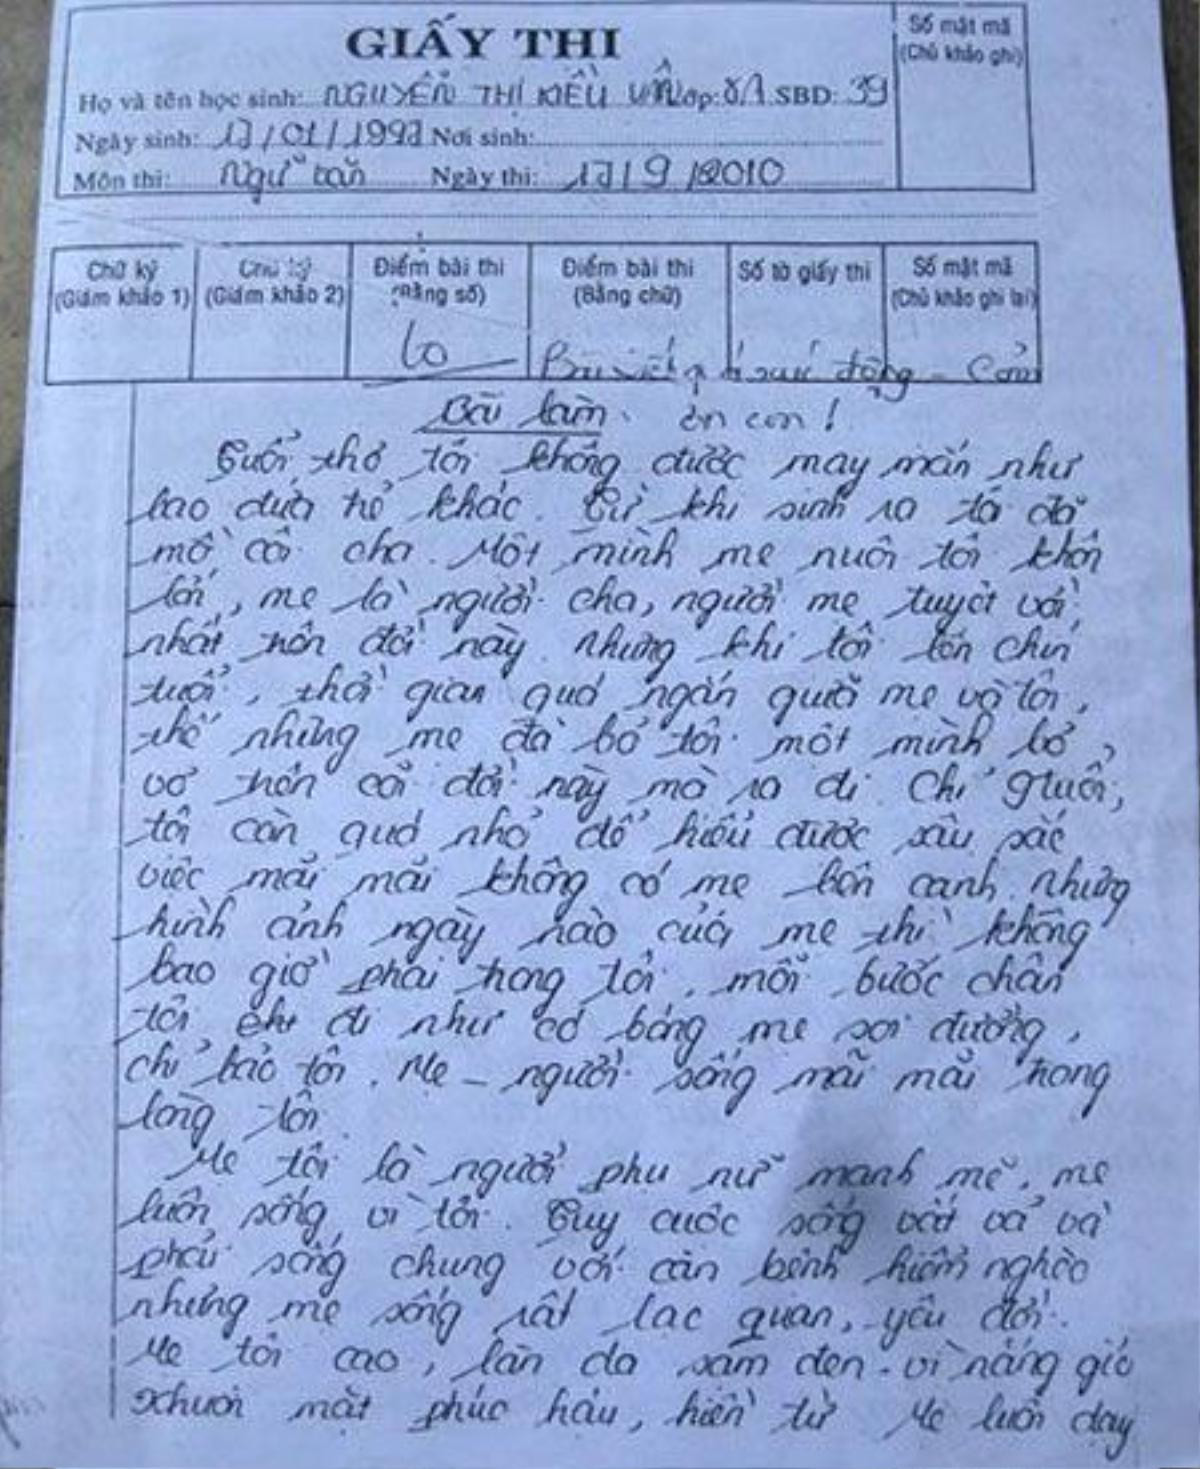 GIẤY THI
Số mật mã
(Chủ khảo ghi)
Họ và tên học sinh: NGUYỄN THỊ KIỀU VÂN Lớp: 8A SBD: 39
Ngày sinh: 17/01/1997 Nơi sinh:
Môn thi: Ngữ văn Ngày thi: 17/9/2010
Chữ ký
(Giám khảo 1)
Chữ ký
(Giám khảo 2)
Điểm bài thi
(Bằng số)
Điểm bài thi
(Bằng chữ)
Số tờ giấy thi
Số mật mã
(Chủ khảo ghi lại)
Bài viết xúc động - Cảm
Bài làm. ơn con!
Tuổi thơ tôi không được may mắn như
bao đứa trẻ khác. Từ khi sinh ra tôi đã
mồ côi cha. Một mình mẹ nuôi tôi khôn
lớn, mẹ là người cha, người mẹ tuyệt vời
nhất trên đời này. Nhưng khi tôi lên chín
tuổi, thời gian quá ngắn gưỡi mẹ và tôi,
thế nhưng mẹ đã bỏ tôi một mình bơ,
vơ trên cõi đời này mà ra đi. Chỉ 9 tuổi,
tôi còn quá nhỏ để hiểu được sâu sắc
việc mãi mãi không có mẹ bên cạnh. Nhưng
hình ảnh ngày nào của mẹ thì không
bao giờ phai trong tôi, mỗi bước chân
tôi đi như có bóng mẹ soi đường,
chỉ bảo tôi. Mẹ - người sống mãi mãi trong
lòng tôi.
Mẹ tôi là người phụ nữ mạnh mẽ, mẹ
luôn sống vì tôi. Tuy cuộc sống vất vả và
phải sống chung với căn bệnh hiểm nghèo
nhưng mẹ sống rất lạc quan, yêu đời.
Mẹ tôi cao, làn da sạm đen vì nắng gió
khuôn mặt phúc hậu, hiền từ. Mẹ luôn dạy